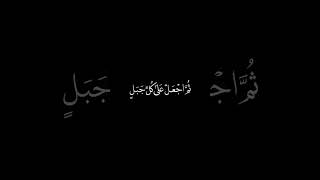 ثُمَّ اجْعَلْ عَلَىٰ كُلِّ جَبَلٍ
ثُمَّ اجْ جَبَلٍ